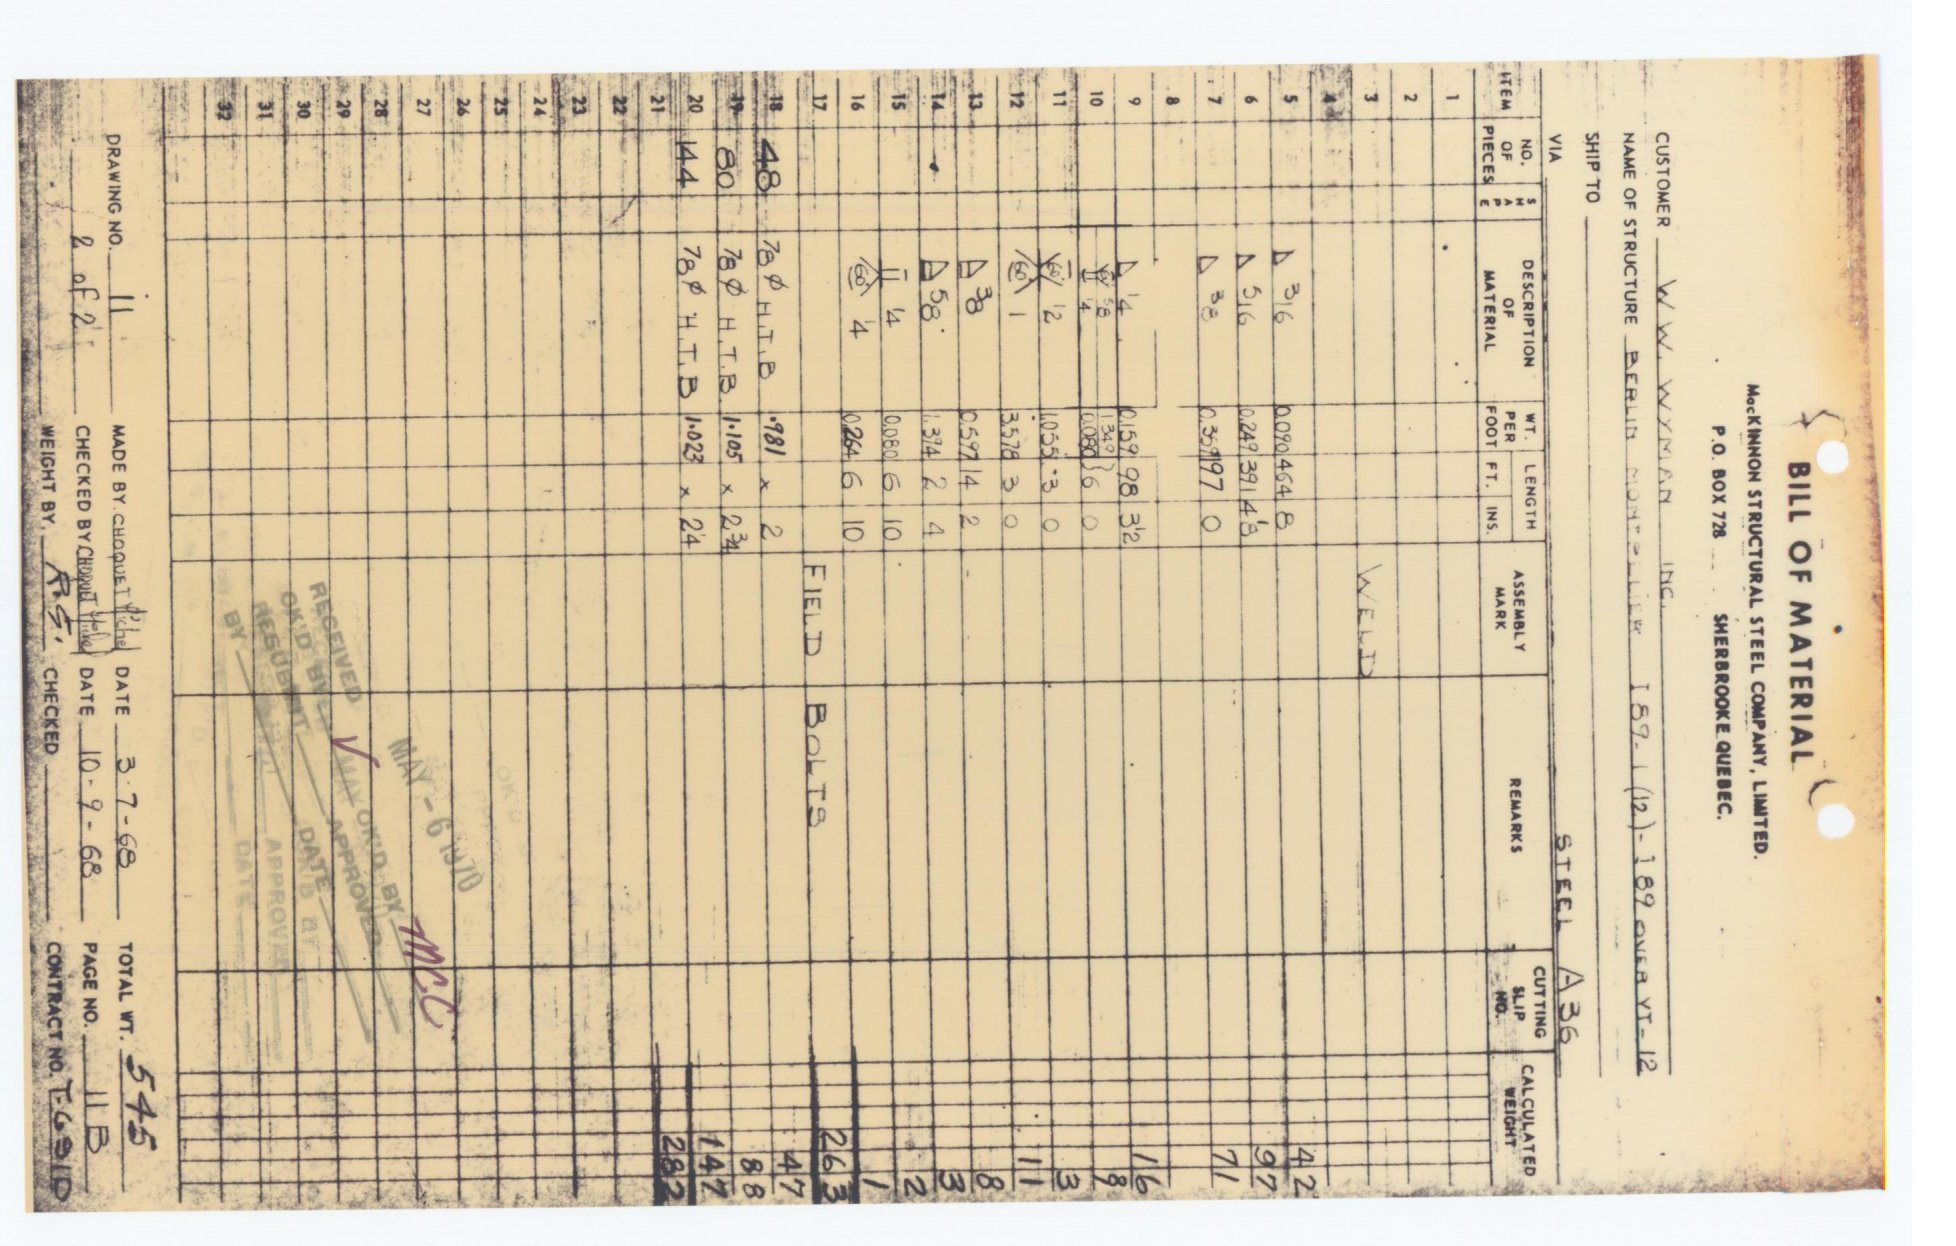 BILL OF MATERIAL
MacKINNON STRUCTURAL STEEL COMPANY, LIMITED.
P.O. BOX 728 SHERBROOKE QUEBEC.
CUSTOMER W.W. WYMAN INC.
NAME OF STRUCTURE BERLIN MONTPELIER I 89-1(12)-I 89 OVER VT-12
SHIP TO
VIA STEEL A36
ITEM NO. OF PIECES SHAPE DESCRIPTION OF MATERIAL WT. PER FOOT LENGTH FT. INS. ASSEMBLY MARK REMARKS CUTTING SLIP NO. CALCULATED WEIGHT
1
2
3 WELD
4
5 3/16 0.090 464 8 42
6 5/16 0.249 391 4 1/8 97
7 3/8 0.359 197 0 71
8
9 1/4 0.159 98 3 1/2 16
10 60 5/8 1.349 1/4 0.080 6 0 8
11 60 1/2 1.055 3 0 3
12 60 1 3.578 3 0 11
13 3/8 0.597 14 2 8
14 5/8 1.394 2 4 3
15 1/4 0.080 6 10 2
16 60 1/4 0.264 6 10 1
17 FIELD BOLTS 263
18 48 7/8 Ø H.T.B .981 x 2 47
19 80 7/8 Ø H.T.B 1.105 x 2 3/4 88
20 144 7/8 Ø H.T.B 1.023 x 2 1/4 147
21 282
22
23
24
25
26
27
28
29
30
31
32
MAY - 6 1970
RECEIVED
OK'D BY
RESUBMIT
BY
OK'D BY M.C.C.
APPROVED
DATE
APPROVED
DATE
DRAWING NO. 11 MADE BY CHOQUET Michel DATE 3-7-68 TOTAL WT. 545
2 of 2 CHECKED BY CHOQUET Michel DATE 10-9-68 PAGE NO. 11B
WEIGHT BY R.G. CHECKED CONTRACT NO. T-631D